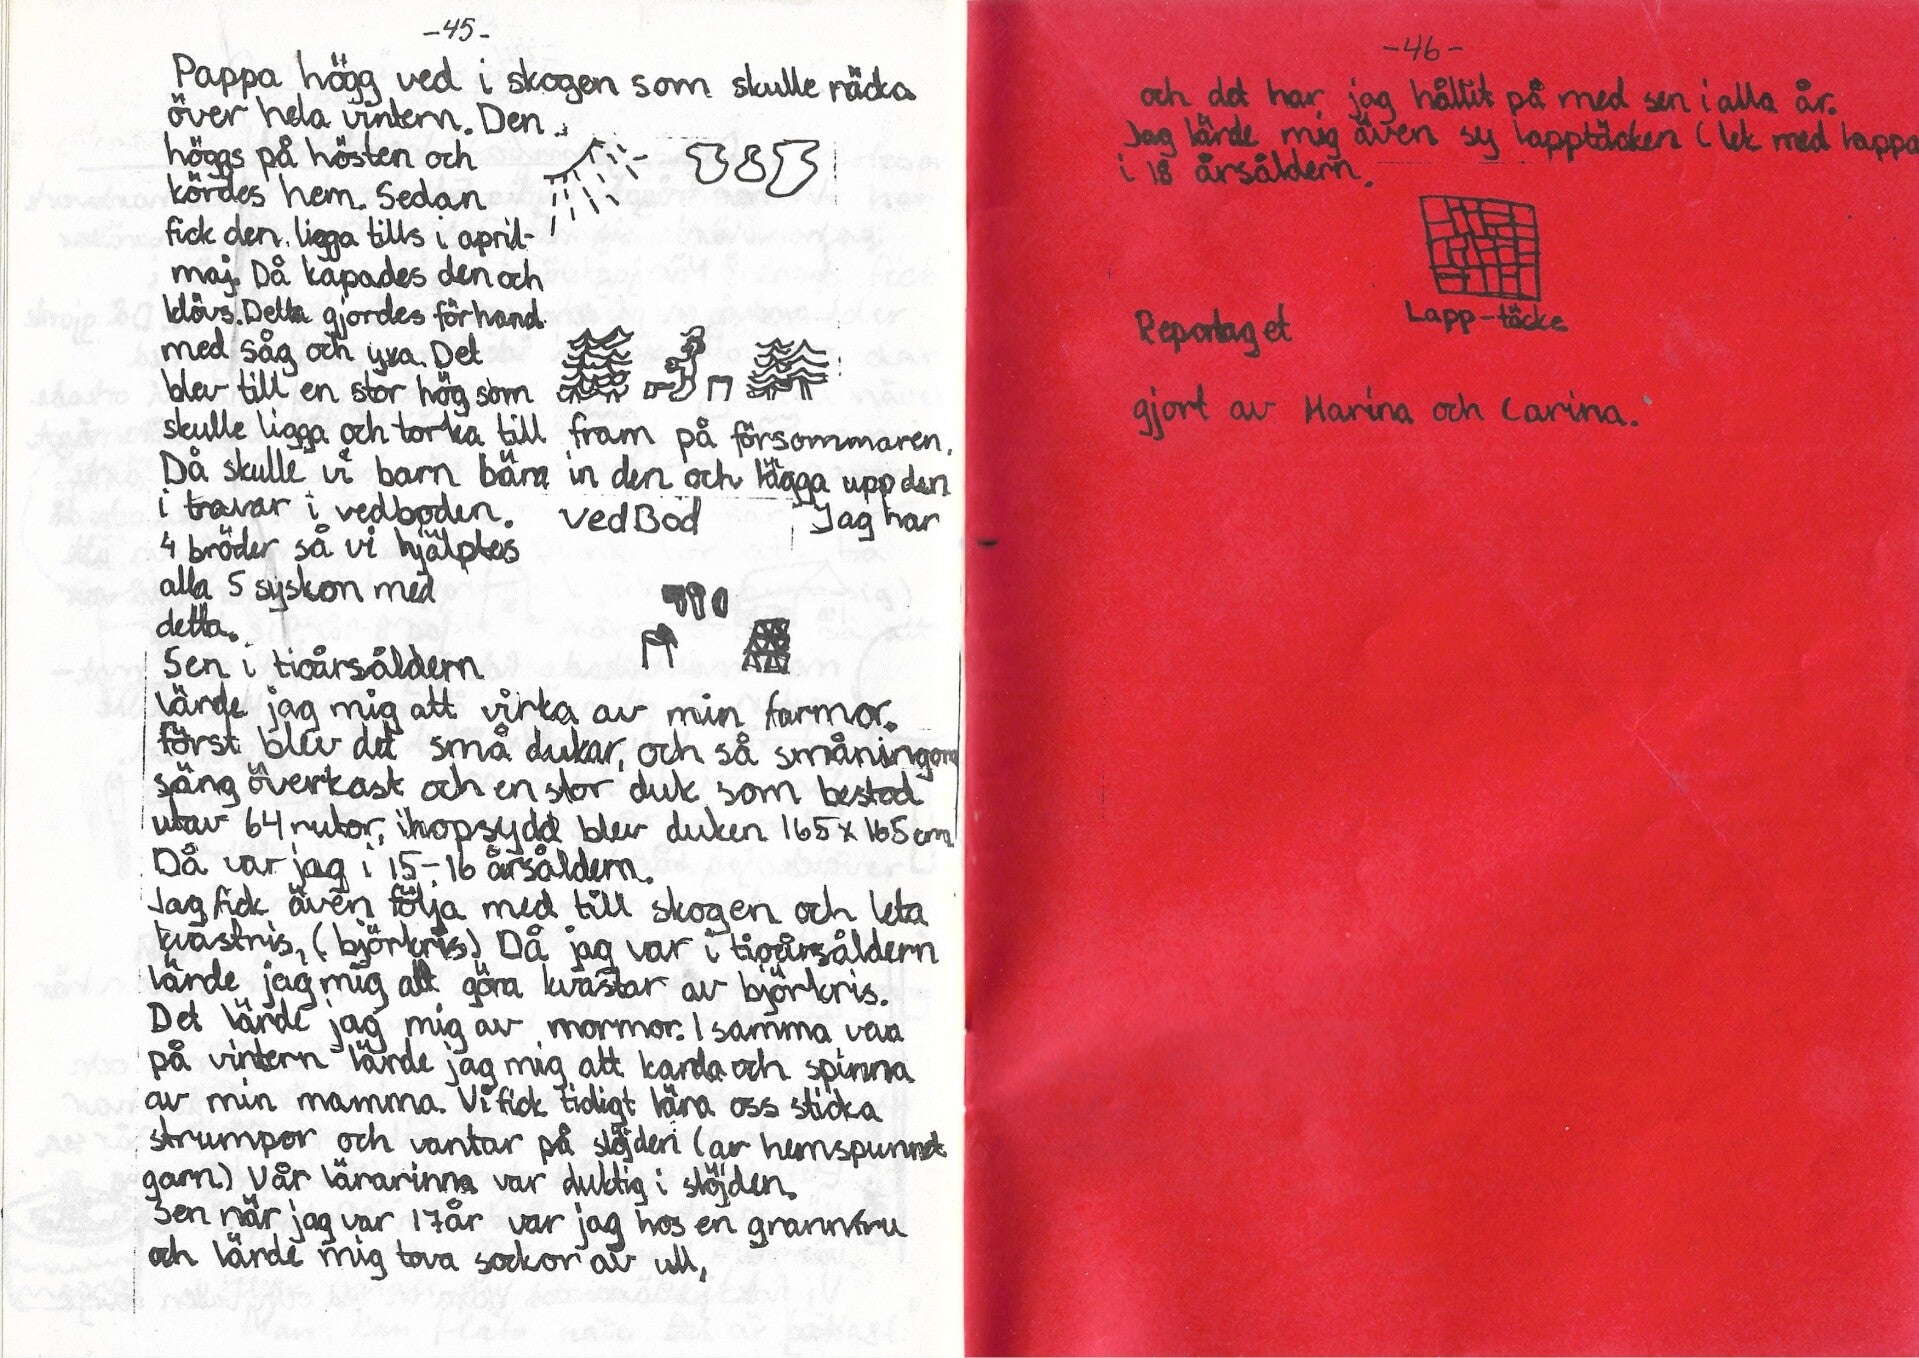 -45-
Pappa högg ved i skogen som skulle räcka
över hela vintern. Den
höggs på hösten och
kördes hem. Sedan
fick den ligga tills i april-
maj. Då kapades den och
klövs. Detta gjordes förhand
med såg och yxa. Det
blev till en stor hög som
skulle ligga och torka till fram på försommaren.
Då skulle vi barn bära in den och lägga upp den
i travar i vedboden. VedBod Jag har
4 bröder så vi hjälptes
alla 5 syskon med
detta.
Sen i tioårsåldern
lärde jag mig att virka av min farmor.
först blev det små dukar, och så småningom
säng överkast och en stor duk som bestod
utav 64 rutor, ihopsydd blev duken 165 x 165 cm
Då var jag i 15-16 årsåldern.
Jag fick även följa med till skogen och leta
kvastris, (björkris) Då jag var i tioårsåldern
lärde jag mig att göra kvastar av björkris.
Det lärde jag mig av mormor. I samma
på vintern lärde jag mig att karda och spinna
av min mamma. Vi fick tidigt lära oss sticka
strumpor och vantar på slöjden (av hemspunnet
garn) Vår lärarinna var duktig i slöjden.
Sen när jag var 17 år var jag hos en grannfru
och lärde mig tova sockor av ull,
-46-
och det har jag hållit på med sen i alla år.
Jag lärde mig även sy lapptäcken (lek med lappa
i 18 årsåldern.
Lapp-täcke
Reportaget
gjort av Marina och Carina.